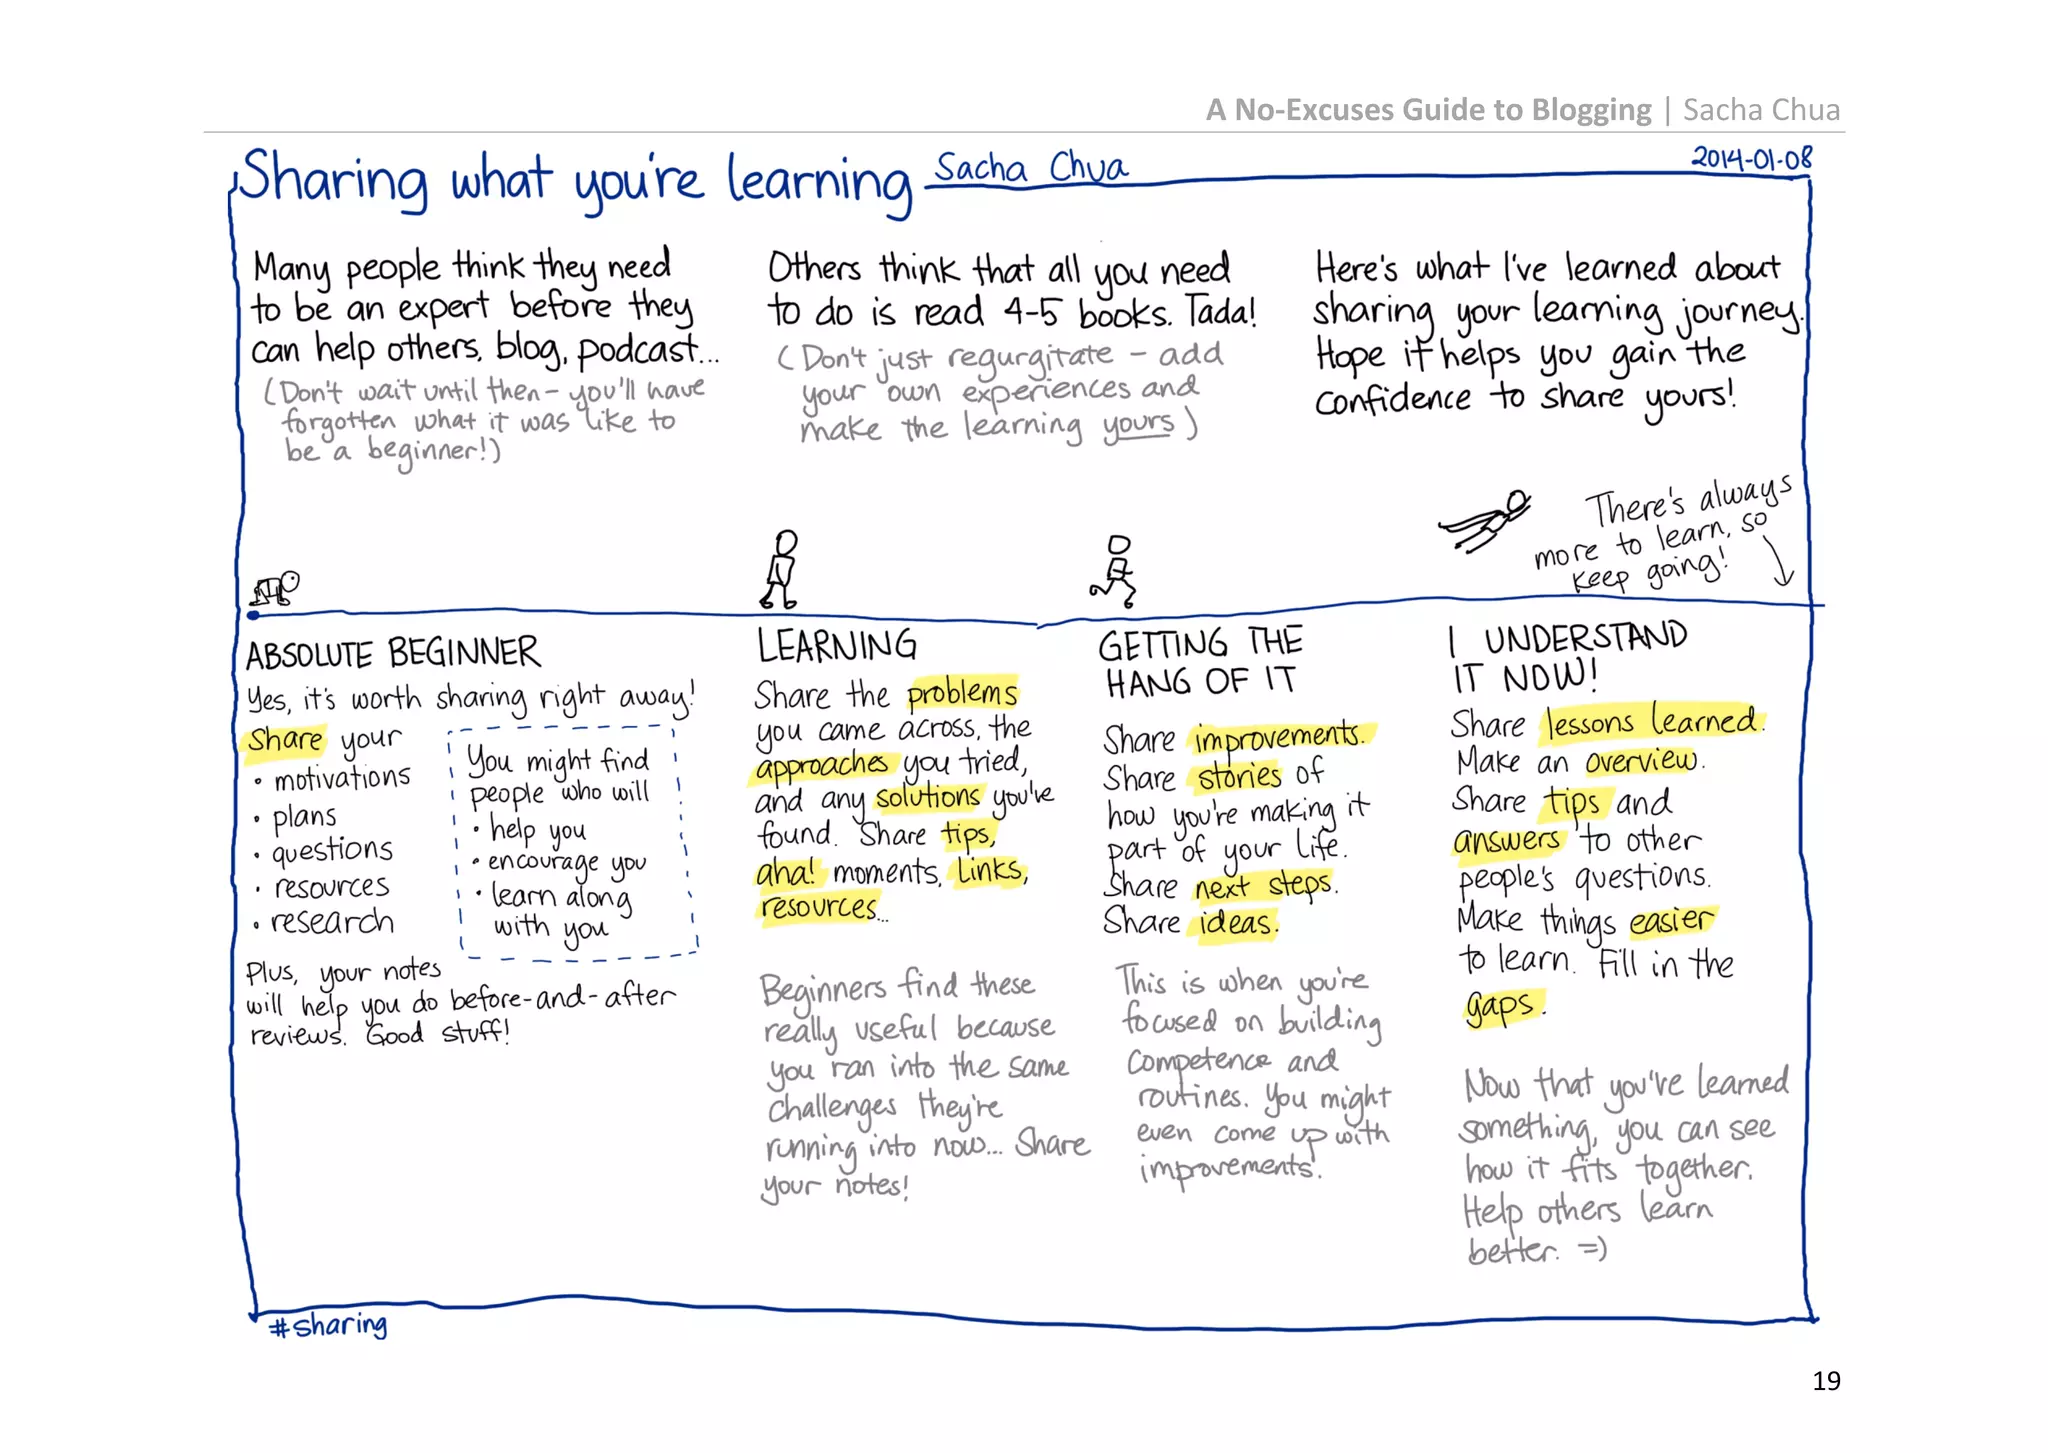 A No-Excuses Guide to Blogging | Sacha Chua
Sharing what you're learning
Sacha Chua
2014-01-08
Many people think they need
to be an expert before they
can help others, blog, podcast...
(Don't wait until then - you'll have
forgotten what it was like to
be a beginner!)
Others think that all you need
to do is read 4-5 books. Tada!
(Don't just regurgitate - add
your own experiences and
make the learning yours)
Here's what I've learned about
sharing your learning journey.
Hope it helps you gain the
confidence to share yours!
There's always
more to learn, so
keep going!
ABSOLUTE BEGINNER
Yes, it's worth sharing right away!
Share your
• motivations
• plans
• questions
• resources
• research
You might find
people who will
• help you
• encourage you
• learn along
with you
Plus, your notes
will help you do before-and-after
reviews. Good stuff!
LEARNING
Share the problems
you came across, the
approaches you tried,
and any solutions you've
found. Share tips,
aha! moments, links,
resources...
Beginners find these
really useful because
you ran into the same
challenges they're
running into now... Share
your notes!
GETTING THE
HANG OF IT
Share improvements.
Share stories of
how you're making it
part of your life.
Share next steps.
Share ideas.
This is when you're
focused on building
competence and
routines. You might
even come up with
improvements!
I UNDERSTAND
IT NOW!
Share lessons learned.
Make an overview.
Share tips and
answers to other
people's questions.
Make things easier
to learn. Fill in the
gaps.
Now that you've learned
something, you can see
how it fits together.
Help others learn
better. =)
#sharing
19